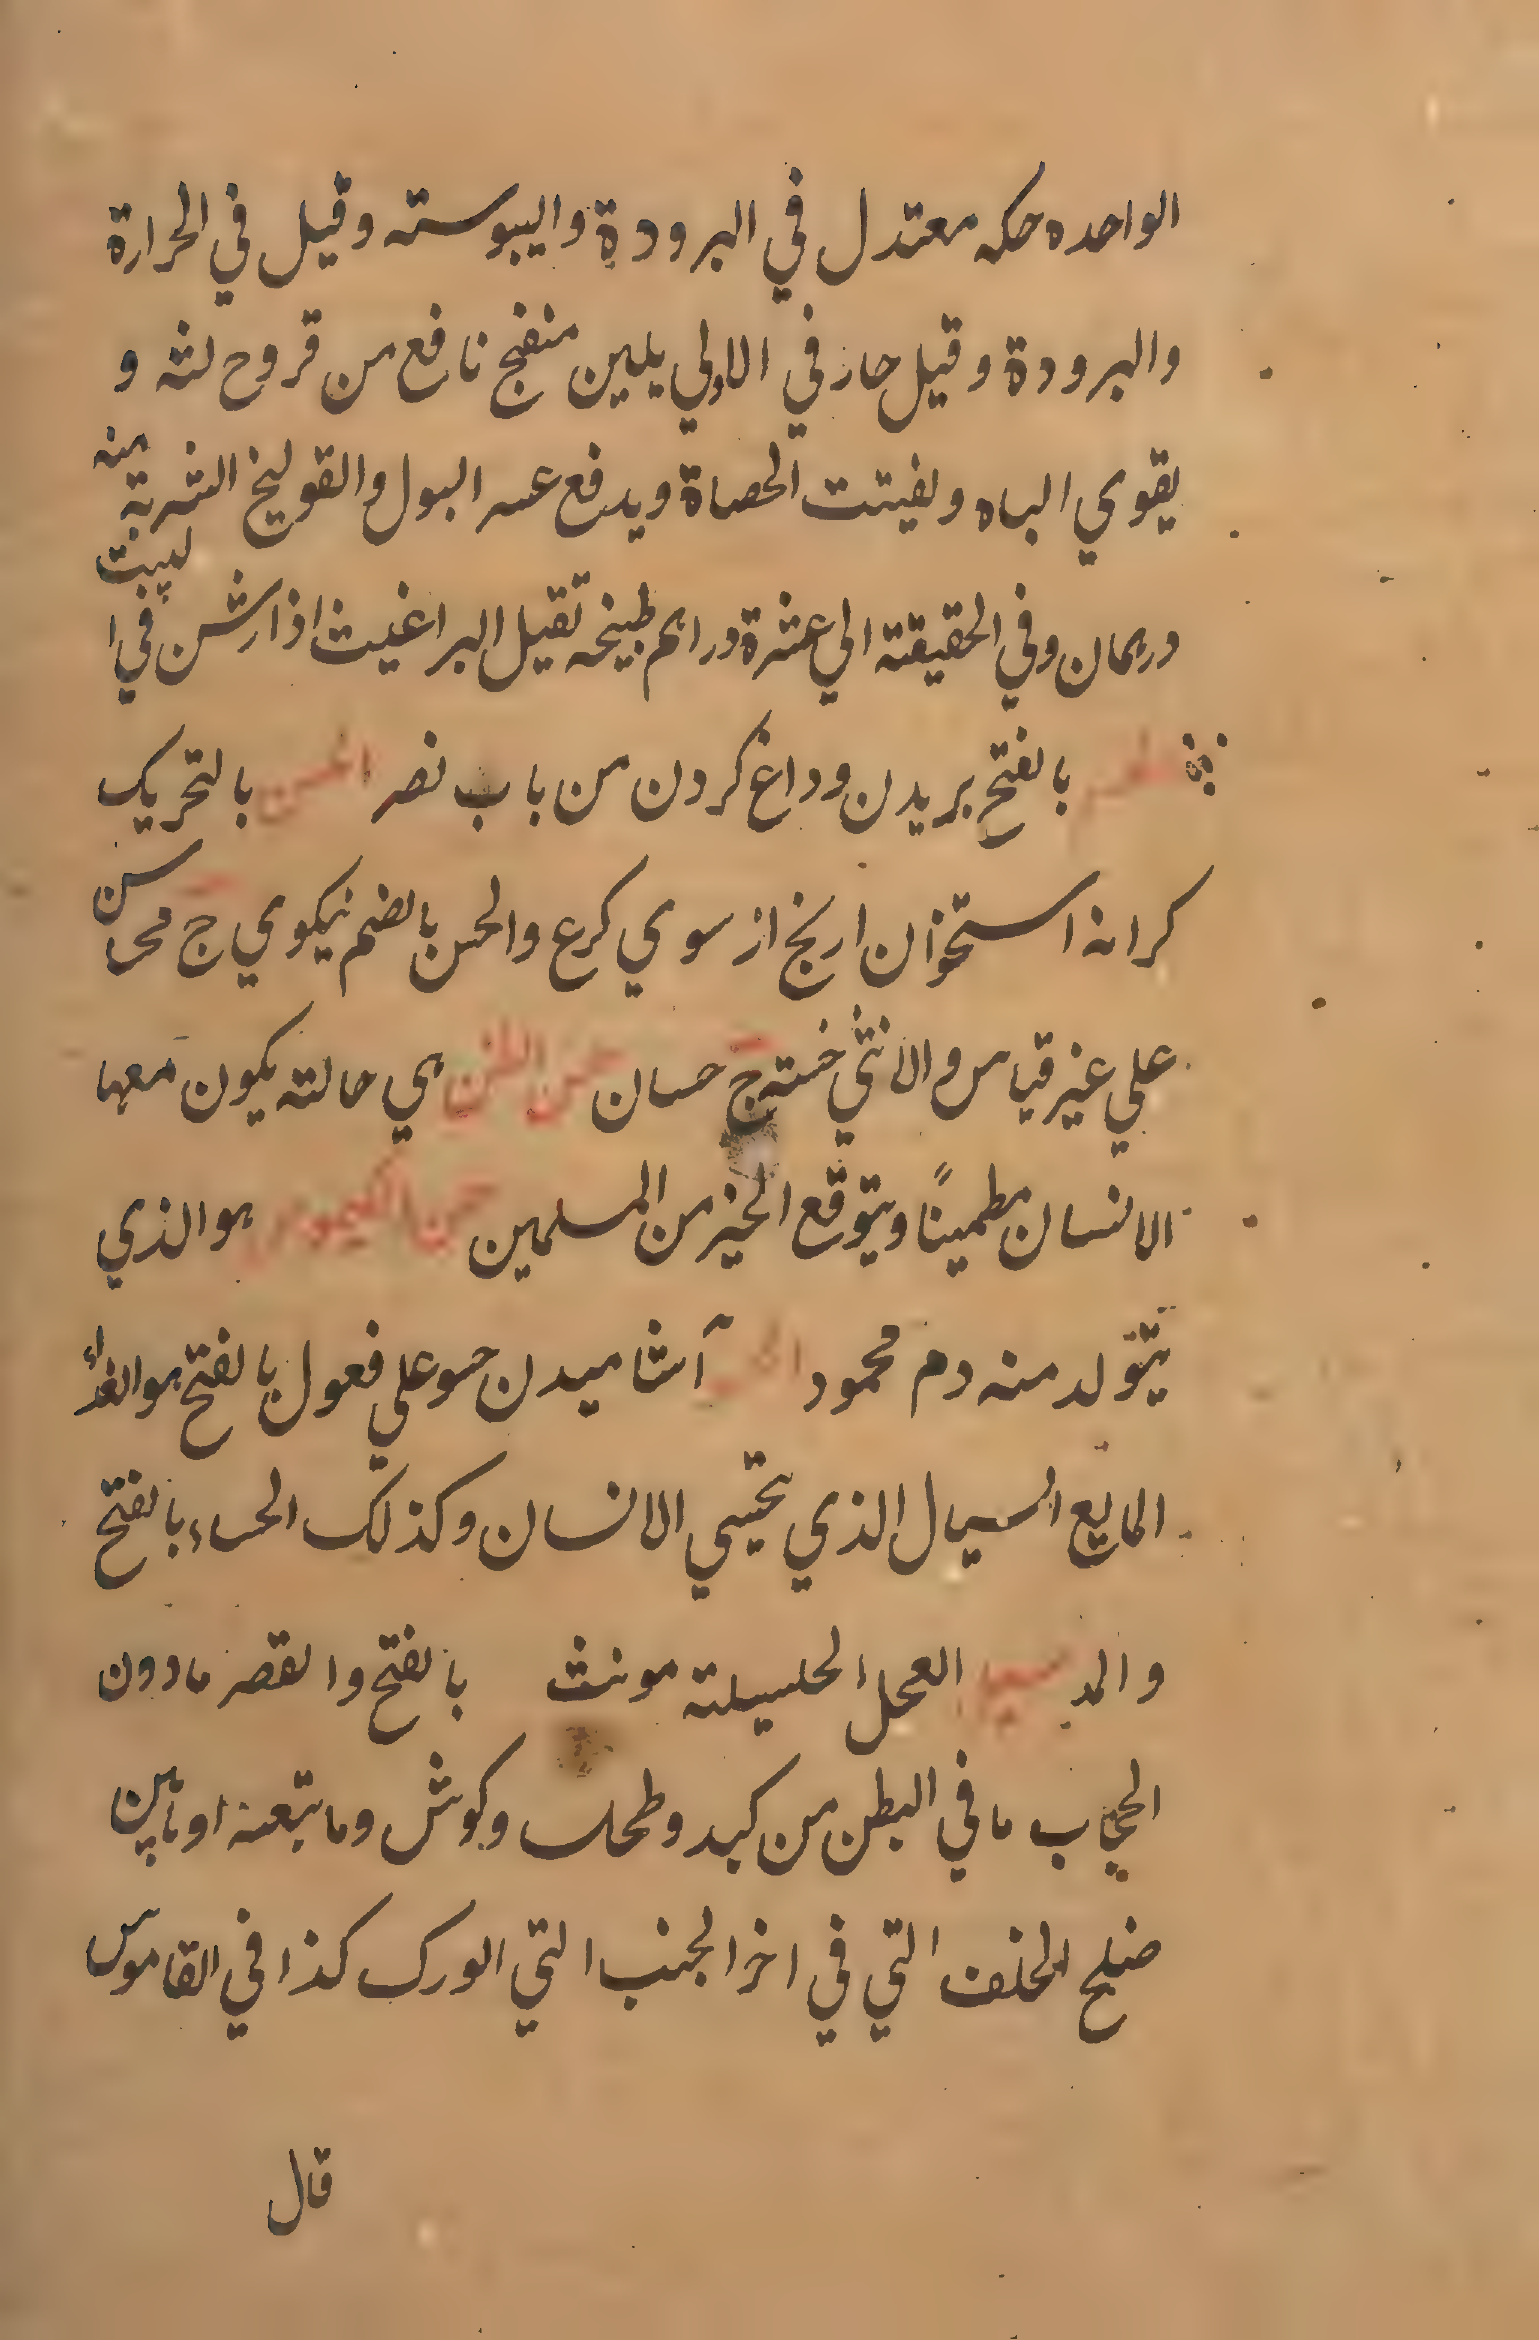 الواحده حكه معتدل في البرودة واليبوسته وقيل في الحرارة
والبرودة وقيل حار في الاولي يلين منفج نافع من قروح لثه و
يقوي الباه ويفيتت الحصاة ويدفع عسر البول والقولنج الشربة منه
درهمان وفي الحقيقته الي عشرة دراهم طبيخه تقيل البراغيث اذا رشن في البيت
بالفتح بريدن وداغ كردن من باب نصر الحسن بالتحريك
كرانه استخوان ارنج از سوي كرع والحسن بالضم نيكوي ج محاسن
علي غير قياس والانثي حسنه ج حسان حسن الظن هي حالته يكون معها
الانسان مطمينًا ويتوقع الخير من المسلمين حسن الكيموس هو الذي
يتولد منه دم محمود آشاميدن حسو علي فعول بالفتح هو الغذاء
المايع السيال الذي يحتسي الانسان وكذلك الحساء بالفتح
والمد العحل الحليلته مونث بالفتح والقصر مادون
الحجاب مافي البطن من كبد وطحال وكوش وما تبعه او مابين
ضلع الخلف التي في اخر الجنب التي الورك كذا في القاموس
قال